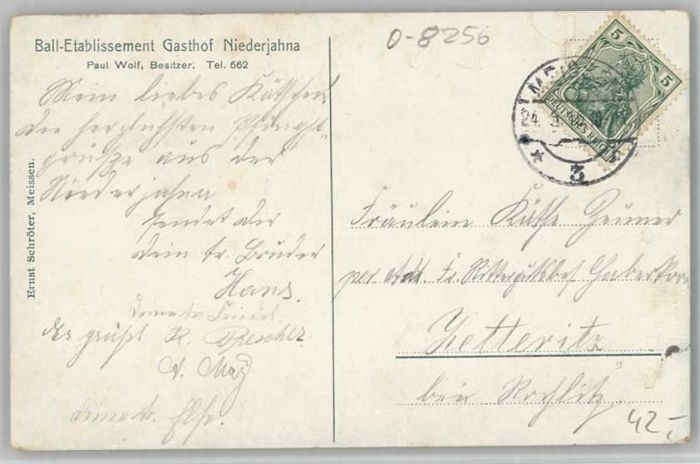 Ball-Etablissement Gasthof Niederjahna
Paul Wolf, Besitzer. Tel. 662
0-8256
Mein liebes Käthchen
die herzlichsten Pfingst-
grüße aus der
Niederjahna
sendet dir
dein tr. Bruder
Hans.
Es grüßt R.
Ernst Schröter, Meissen.
5 5
DEUTSCHES REICH
24.
* 3
Fräulein Käthe
per Adr. Fr. Rittergutsbes. Haberkorn
Zetteritz
bei Rochlitz.
42,-